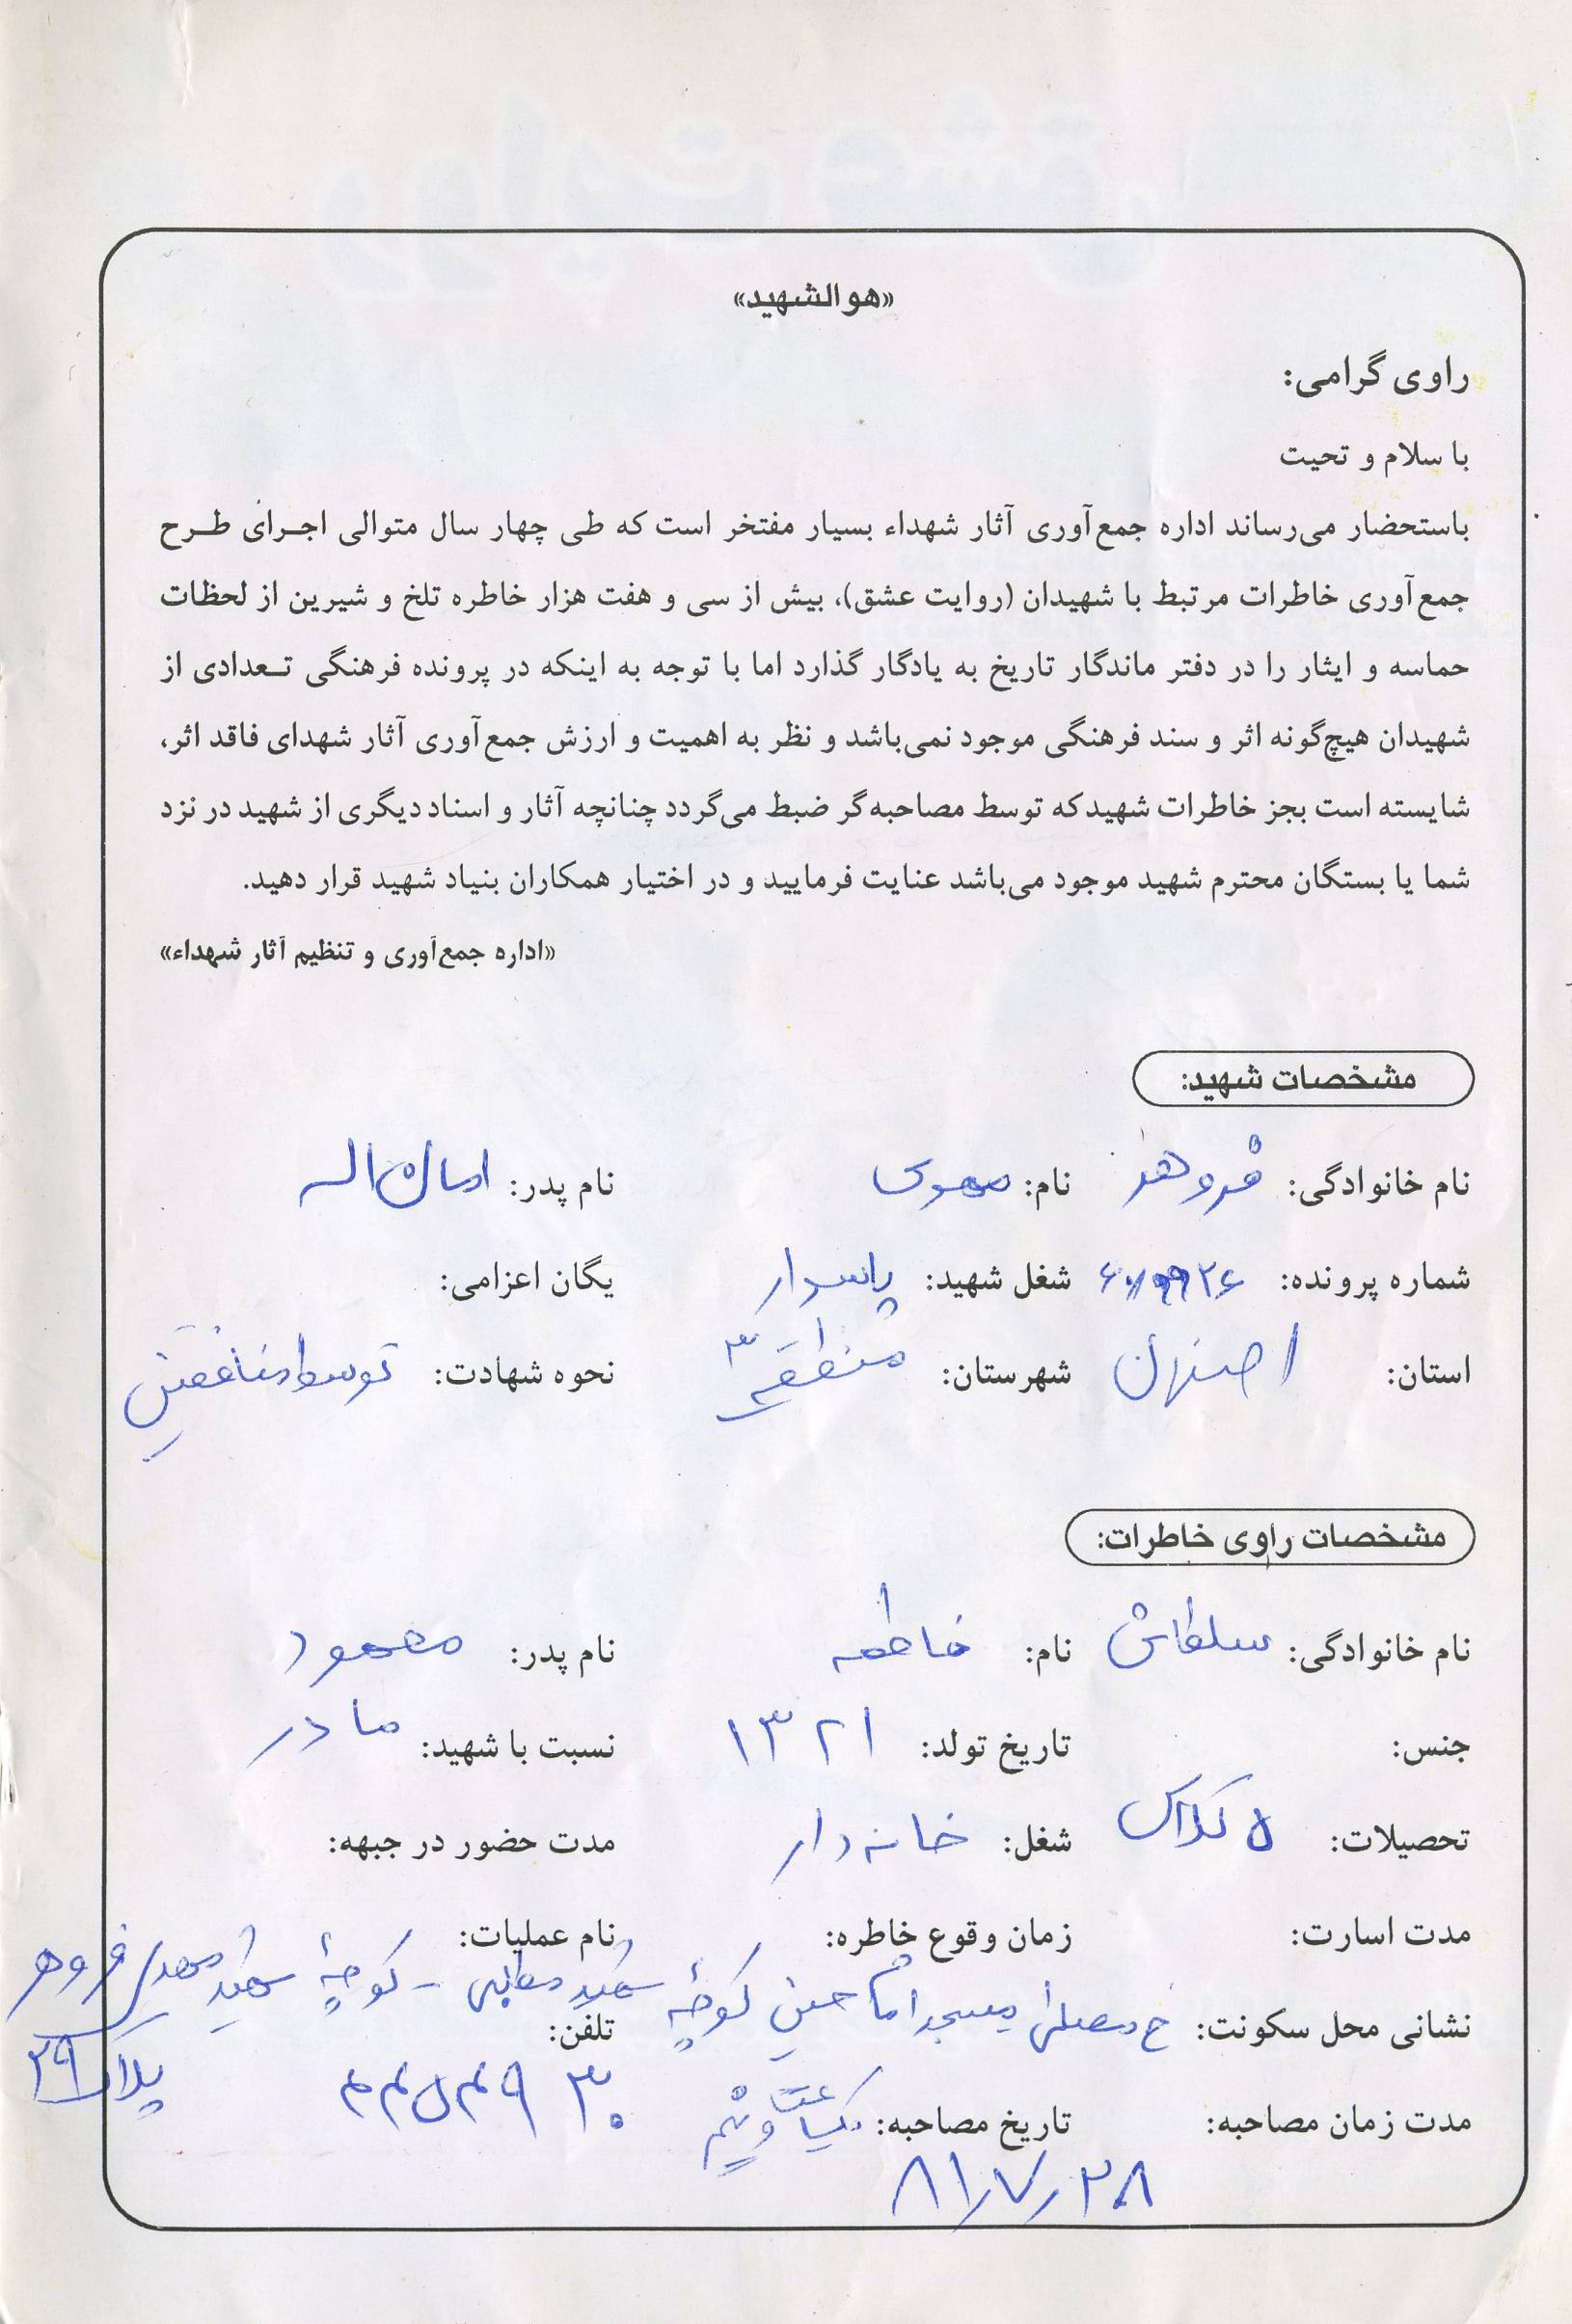 «هوالشهید»
راوی گرامی:
با سلام و تحیت
باستحضار می‌رساند اداره جمع‌آوری آثار شهداء بسیار مفتخر است که طی چهار سال متوالی اجرای طرح
جمع‌آوری خاطرات مرتبط با شهیدان (روایت عشق)، بیش از سی و هفت هزار خاطره تلخ و شیرین از لحظات
حماسه و ایثار را در دفتر ماندگار تاریخ به یادگار گذارد اما با توجه به اینکه در پرونده فرهنگی تعدادی از
شهیدان هیچ‌گونه اثر و سند فرهنگی موجود نمی‌باشد و نظر به اهمیت و ارزش جمع‌آوری آثار شهدای فاقد اثر،
شایسته است بجز خاطرات شهید که توسط مصاحبه‌گر ضبط می‌گردد چنانچه آثار و اسناد دیگری از شهید در نزد
شما یا بستگان محترم شهید موجود می‌باشد عنایت فرمایید و در اختیار همکاران بنیاد شهید قرار دهید.
«اداره جمع‌آوری و تنظیم آثار شهداء»
مشخصات شهید:
نام خانوادگی: فروهر نام: مهدی نام پدر: امان اله
شماره پرونده: شغل شهید: پاسدار یگان اعزامی:
استان: اصفهان شهرستان: منطقه ۳ نحوه شهادت: توسط منافقین
مشخصات راوی خاطرات:
نام خانوادگی: نام: فاطمه نام پدر: محمود
جنس: تاریخ تولد: ۱۳۲۱ نسبت با شهید: مادر
تحصیلات: ۵ کلاس شغل: خانه دار مدت حضور در جبهه:
مدت اسارت: زمان وقوع خاطره: نام عملیات:
نشانی محل سکونت: خ مصلی مسجد امام حسین کوچهٔ شهید - کوچهٔ شهید مهدی فروهر
پلاک ۲۹
تلفن:
مدت زمان مصاحبه: تاریخ مصاحبه: یکساعت و نیم
۸۱/۷/۲۸